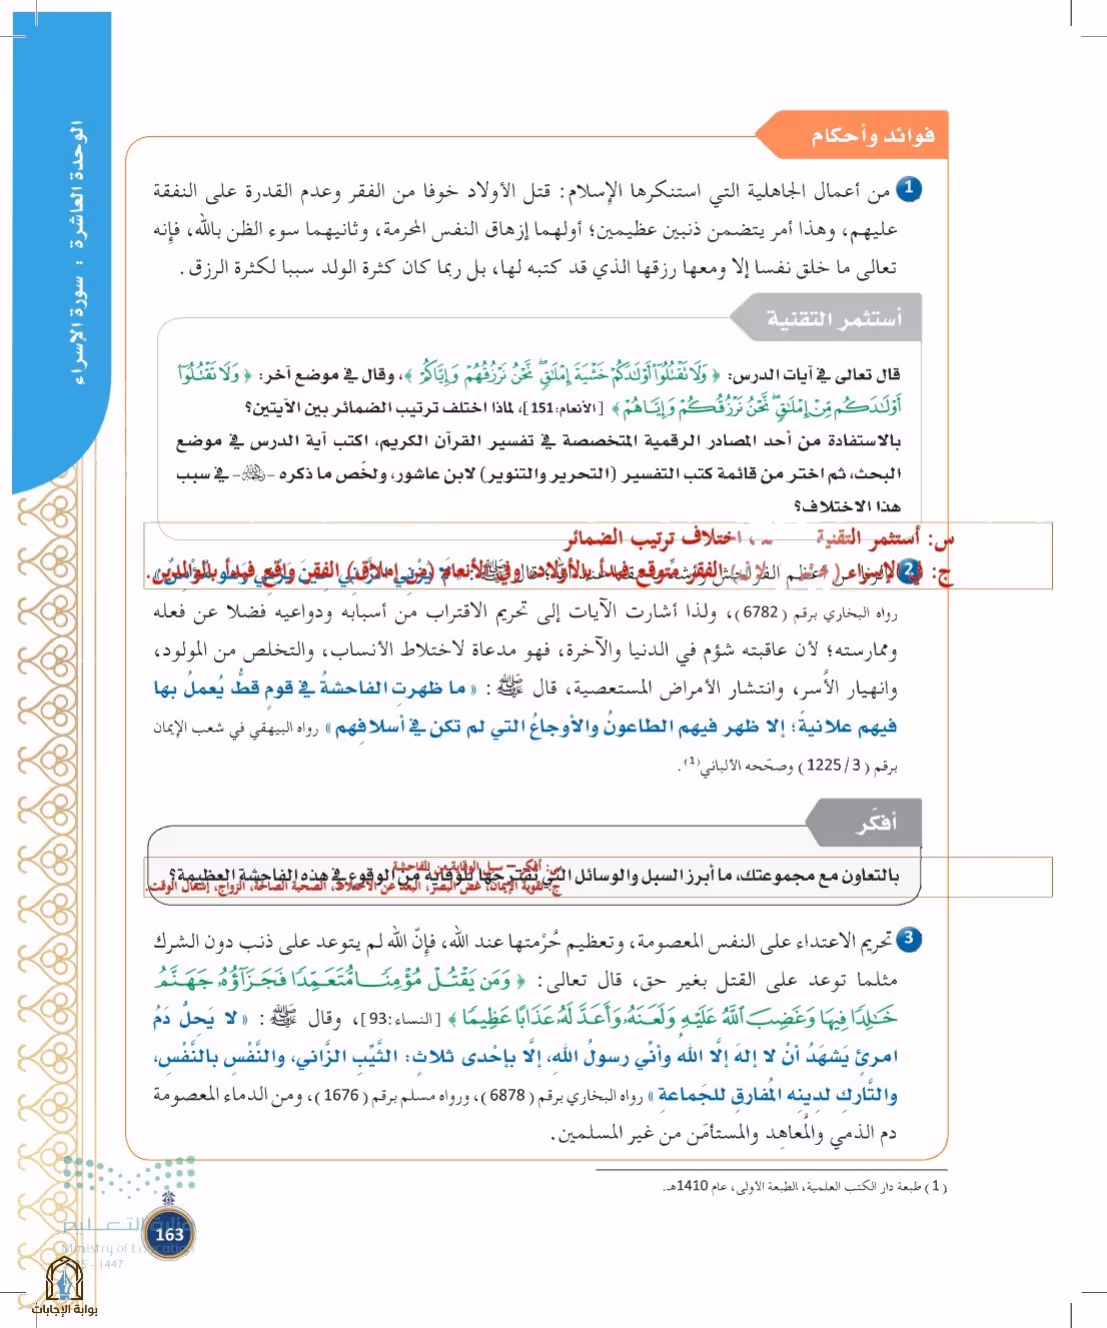 الوحدة العاشرة : سورة الإسراء
فوائد وأحكام
1 من أعمال الجاهلية التي استنكرها الإسلام: قتل الأولاد خوفا من الفقر وعدم القدرة على النفقة
عليهم، وهذا أمر يتضمن ذنبين عظيمين؛ أولهما إزهاق النفس المحرمة، وثانيهما سوء الظن بالله، فإنه
تعالى ما خلق نفسا إلا ومعها رزقها الذي قد كتبه لها، بل ربما كان كثرة الولد سببا لكثرة الرزق .
أستثمر التقنية
قال تعالى في آيات الدرس: ﴿ وَلَا نَقْتُلُوٓا۟ أَوْلَٰدَكُمْ خَشْيَةَ إِمْلَٰقٍ ۖ نَّحْنُ نَرْزُقُهُمْ وَإِيَّاكُمْ ﴾، وقال في موضع آخر: ﴿ وَلَا تَقْتُلُوٓا۟
أَوْلَٰدَكُم مِّنْ إِمْلَٰقٍ ۖ نَّحْنُ نَرْزُقُكُمْ وَإِيَّاهُمْ ﴾ [الأنعام:151]، لماذا اختلف ترتيب الضمائر بين الآيتين؟
بالاستفادة من أحد المصادر الرقمية المتخصصة في تفسير القرآن الكريم، اكتب آية الدرس في موضع
البحث، ثم اختر من قائمة كتب التفسير (التحرير والتنوير) لابن عاشور، ولخّص ما ذكره -رحمه الله- في سبب
هذا الاختلاف؟
س: أستثمر التقنية ، اختلاف ترتيب الضمائر
ج: في الإسراء الفقر متوقع فبدأ بالأولاد، وفي الأنعام (من إملاق) الفقر واقع فبدأ بالوالدين.
2
رواه البخاري برقم (6782)، ولذا أشارت الآيات إلى تحريم الاقتراب من أسبابه ودواعيه فضلا عن فعله
وممارسته؛ لأن عاقبته شؤم في الدنيا والآخرة، فهو مدعاة لاختلاط الأنساب، والتخلص من المولود،
وانهيار الأُسر، وانتشار الأمراض المستعصية، قال ﷺ : « ما ظهرتِ الفاحشةُ في قومٍ قطُّ يُعملُ بها
فيهم علانيةً؛ إلا ظهر فيهم الطاعونُ والأوجاعُ التي لم تكن في أسلافِهم » رواه البيهقي في شعب الإيمان
برقم (1225/3) وصحّحه الألباني(1).
أفكّر
بالتعاون مع مجموعتك، ما أبرز السبل والوسائل التي نقترحها للوقاية من الوقوع في هذه الفاحشة العظيمة؟
س: أفكر – سبل الوقاية من الفاحشة
ج: تقوية الإيمان، غض البصر، البعد عن الاختلاط، الصحبة الصالحة، الزواج، إشغال الوقت.
3 تحريم الاعتداء على النفس المعصومة، وتعظيم حُرْمتها عند الله، فإنّ الله لم يتوعد على ذنب دون الشرك
مثلما توعد على القتل بغير حق، قال تعالى: ﴿ وَمَن يَقْتُلْ مُؤْمِنًا مُّتَعَمِّدًا فَجَزَآؤُهُۥ جَهَنَّمُ
خَٰلِدًا فِيهَا وَغَضِبَ ٱللَّهُ عَلَيْهِ وَلَعَنَهُۥ وَأَعَدَّ لَهُۥ عَذَابًا عَظِيمًا ﴾ [النساء:93]، وقال ﷺ : « لا يَحِلُّ دَمُ
امرئٍ يَشهَدُ أنْ لا إلهَ إلَّا اللهُ وأنِّي رسولُ اللهِ، إلَّا بإحْدى ثلاثٍ: الثَّيِّب الزَّاني، والنَّفْس بالنَّفْسِ،
والتَّارك لدِينِه المُفارق للجَماعةِ » رواه البخاري برقم (6878)، ورواه مسلم برقم (1676)، ومن الدماء المعصومة
دم الذمي والمُعاهِد والمستأمَن من غير المسلمين.
(1) طبعة دار الكتب العلمية، الطبعة الأولى، عام 1410هـ.
وزارة التعليم
Ministry of Education
1447 -
163
بوابة الإجابات